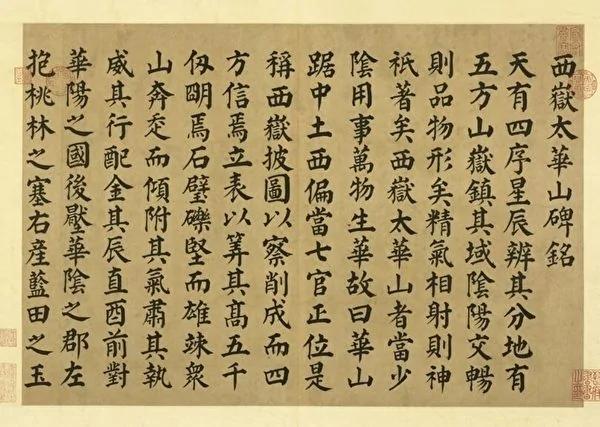 西嶽太華山碑銘
天有四序星辰辨其分地有
五方山嶽鎮其域陰陽交暢
則品物形矣精氣相射則神
祇著矣西嶽太華山者當少
陰用事萬物生華故曰華山
踞中土西偏當七官正位是
稱西嶽披圖以察削成而四
方信焉立表以筭其髙五千
仭明焉石璧礫堅而雄竦衆
山奔走而傾附其氣肅其執
威其行配金其辰直酉前對
華陽之國後壓華陰之郡左
抱桃林之塞右產藍田之玉